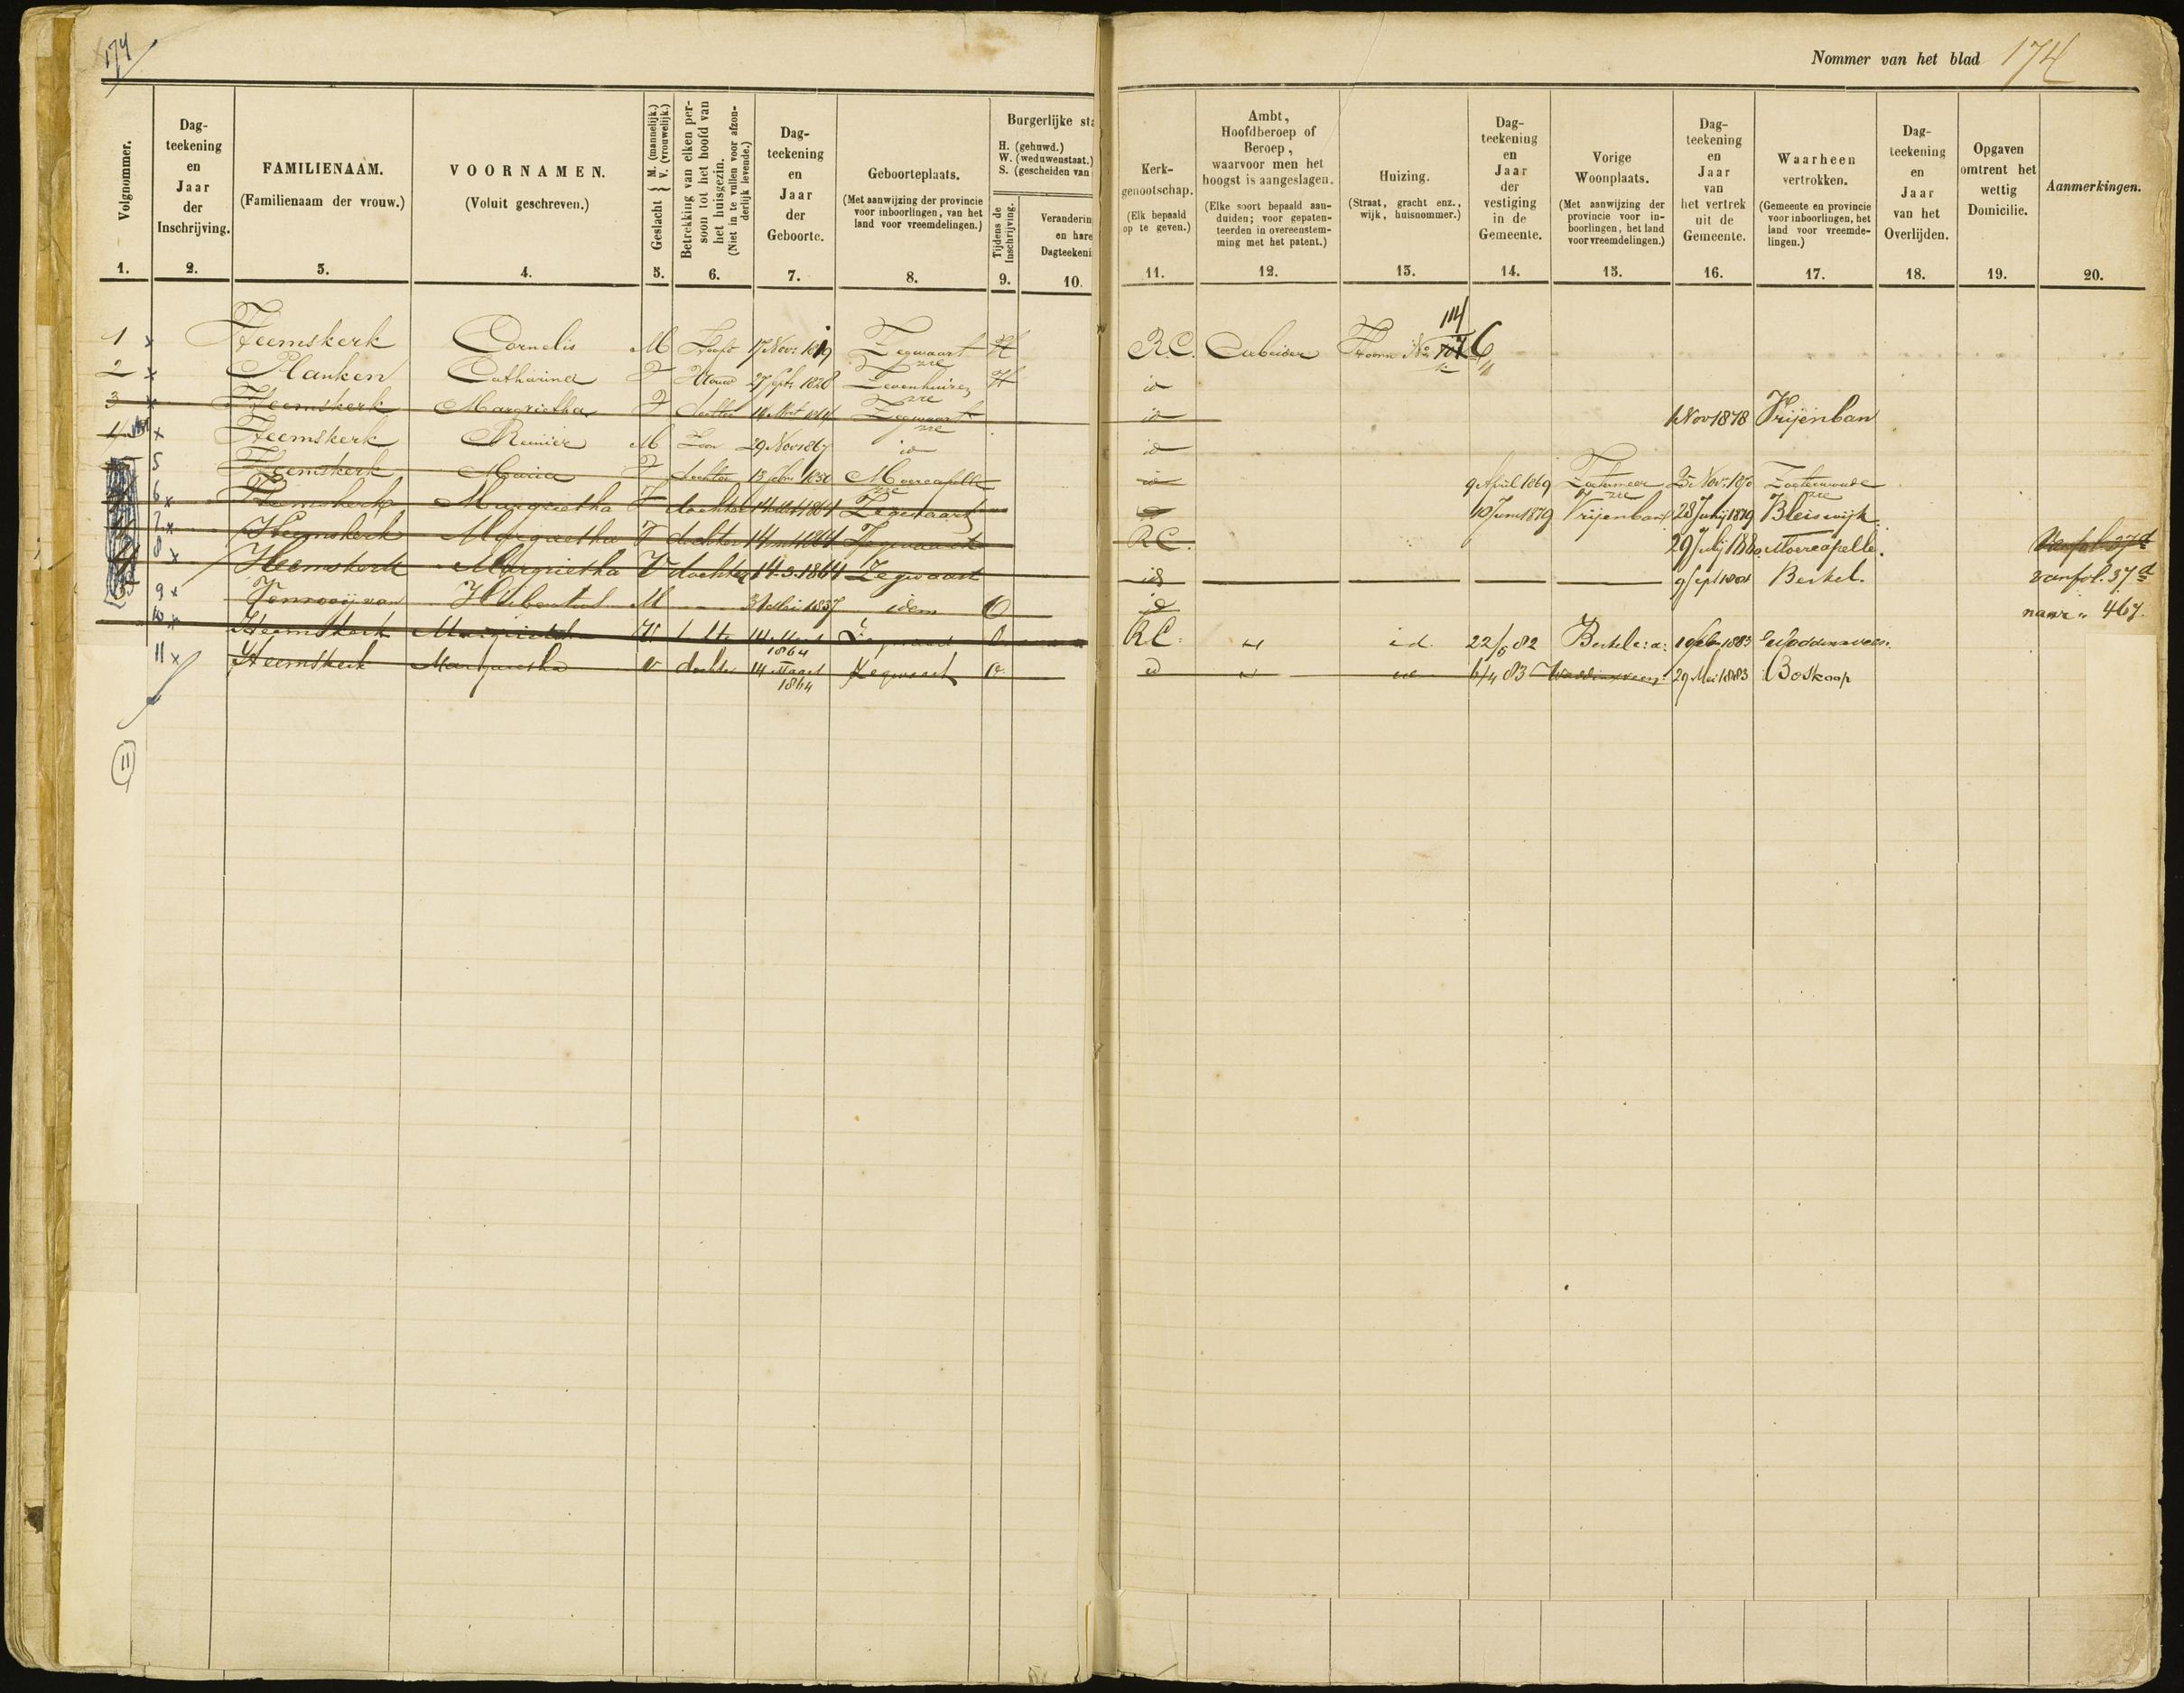 174
Nommer van het blad 174
Volgnommer.
1.
Dag-
teekening
en
Jaar
der
Inschrijving.
2.
FAMILIENAAM.
(Familienaam der vrouw.)
3.
VOORNAMEN.
(Voluit geschreven.)
4.
Geslacht { M. (mannelijk.) V. (vrouwelijk.)
5.
Betrekking van elken per-
soon tot het hoofd van
het huisgezin.
(Niet in te vullen voor afzon-
derlijk levende.)
6.
Dag-
teekening
en
Jaar
der
Geboorte.
7.
Geboorteplaats.
(Met aanwijzing der provincie
voor inboorlingen, van het
land voor vreemdelingen.)
8.
Burgerlijke sta
H. (gehuwd.)
W. (weduwenstaat.)
S. (gescheiden van
Tijdens de
inschrijving.
9.
Veranderin
en hare
Dagteekeni
10.
Kerk-
genootschap.
(Elk bepaald
op te geven.)
11.
Ambt,
Hoofdberoep of
Beroep,
waarvoor men het
hoogst is aangeslagen.
(Elke soort bepaald aan-
duiden; voor gepaten-
teerden in overeenstem-
ming met het patent.)
12.
Huizing.
(Straat, gracht enz.,
wijk, huisnommer.)
13.
Dag-
teekening
en
Jaar
der
vestiging
in de
Gemeente.
14.
Vorige
Woonplaats.
(Met aanwijzing der
provincie voor in-
boorlingen, het land
voor vreemdelingen.)
15.
Dag-
teekening
en
Jaar
van
het vertrek
uit de
Gemeente.
16.
Waarheen
vertrokken.
(Gemeente en provincie
voor inboorlingen, het
land voor vreemde-
lingen.)
17.
Dag-
teekening
en
Jaar
van het
Overlijden.
18.
Opgaven
omtrent het
wettig
Domicilie.
19.
Aanmerkingen.
20.
1 x Heemskerk Cornelis M Hoofd 17 Nov: 1819 Zegwaart H R.C. Arbeider No 6
2 x Planken Catharina V Vrouw 27 Sept 1828 Zevenhuizen H id
3 x Heemskerk Margrietha V dochter 14 Mrt 1864 Zegwaart id 1 Nov 1878 Vrijenban
4 x Heemskerk Reinier M Zoon 29 Nov 1867 id id
5 Heemskerk Maria V dochter 13 Febr 1850 Moercapelle id 9 April 1869 Zoetermeer Nov: 1870 Zoeterwoude
6 x Heemskerk Margrietha V dochter 14 Mrt 1864 Zegwaart id 10 Juni 1879 Vrijenban 28 Julij 1879 Bleiswijk
7 x Heemskerk Margrietha V dochter 14 1864 Zegwaart R.C. 29 Julij 1880 Moercapelle. van fol. 37d
8 x Heemskerk Margrietha V dochter 14.3.1864 Zegwaart id 9 Sept 1881 Berkel. van fol. 37d
9 x Venrooij van Hubertus M 31 Mei 1837 idem O id naar " 467.
10 x Heemskerk V 14 Maart 1864 O R.C. " id 22/5 82 Berkel c: a: 1883 Waddinxveen.
11 x Heemskerk Margrietha V dochter 14 Maart 1864 Zegwaart O id " id 6/4 83 Waddinxveen 29 Mei 1883 Boskoop
11